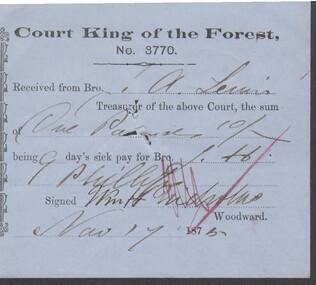 Court King of the Forest,
No. 3770.
Received from Bro. A. Lewis
Treasurer of the above Court, the sum
of One Pound 10/-
being 9 day's sick pay for Bro. H.
Phillips
Signed Wm H
Woodward.
Nov 17 1875